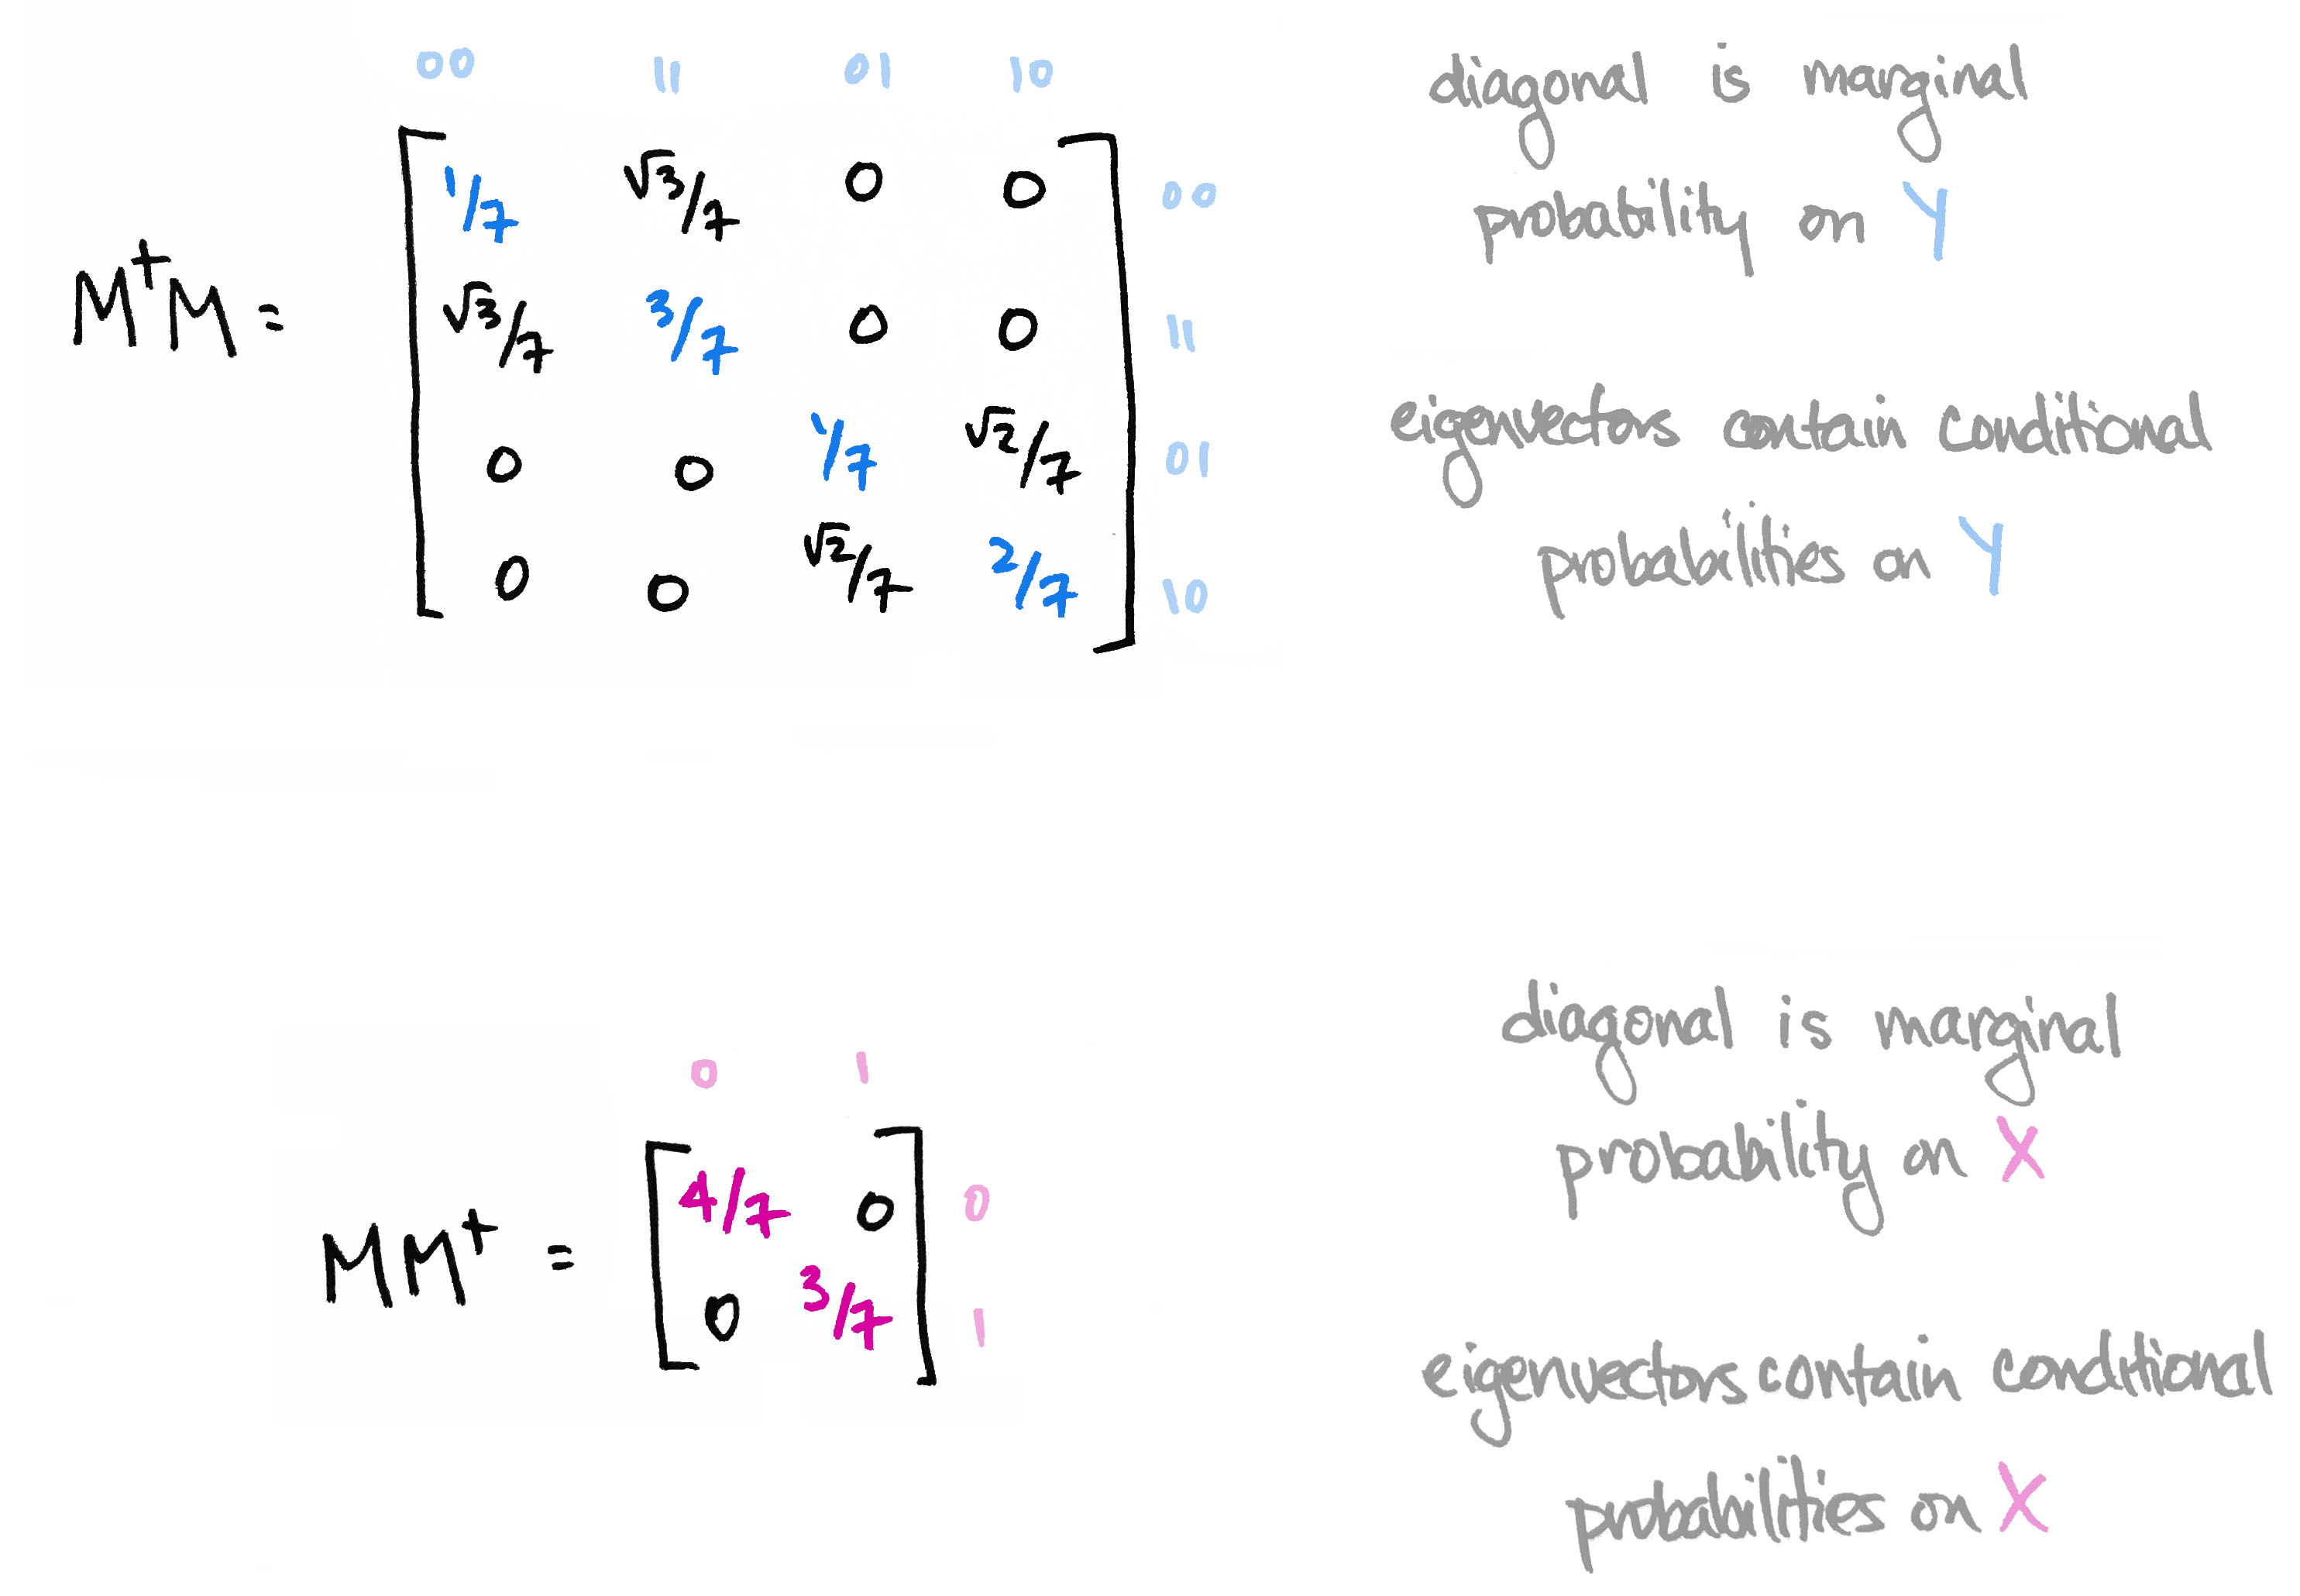 00 11 01 10
diagonal is marginal
1/7 √3/7 0 0 00
probability on Y
M†M =
√3/7 3/7 0 0 11
eigenvectors contain conditional
0 0 1/7 √2/7 01
probabilities on Y
0 0 √2/7 2/7 10
diagonal is marginal
0 1
probability on X
4/7 0 0
MM† =
0 3/7 1
eigenvectors contain conditional
probabilities on X